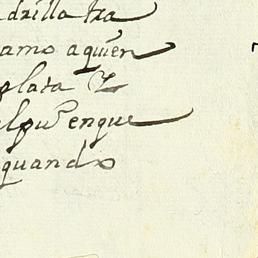 drilla tra
amo aquien
plata Y
enque
quando